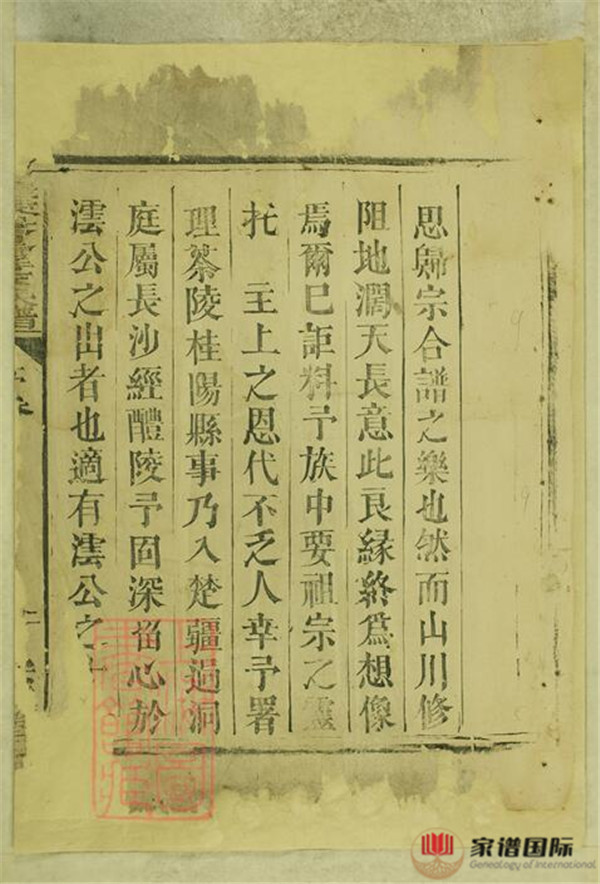 思歸宗合譜之樂也然而山川修
阻地濶天長意此良緣終爲想像
焉爾巳詎料予族中要祖宗之靈
托 主上之恩代不乏人幸予署
理茶陵桂陽縣事乃入楚疆過洞
庭屬長沙經醴陵予固深留心於
澐公之出者也適有澐公之
家谱国际
Genealogy of International